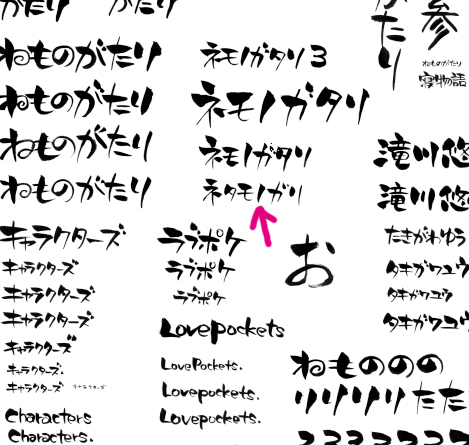 ねものがたり
ねものがたり
ねものがたり
ねものがたり
ネモノガタリ3
ネモノガタリ
ネモノガタリ
ネタモノガリ
たり
参
ねものがたり
寝物語
滝川悠
滝川悠
たきがわゆう
タキガワユウ
タキガワユウ
タキガワユウ
キャラクターズ
キャラクターズ
キャラクターズ
キャラクターズ
キャラクターズ
キャラクターズ.
キャラクターズ
Characters
Characters.
ラブポケ
ラブポケ
ラブポケ
Lovepockets
LovePockets.
Lovepockets.
Lovepockets.
お
ねもののの
りりりりたた